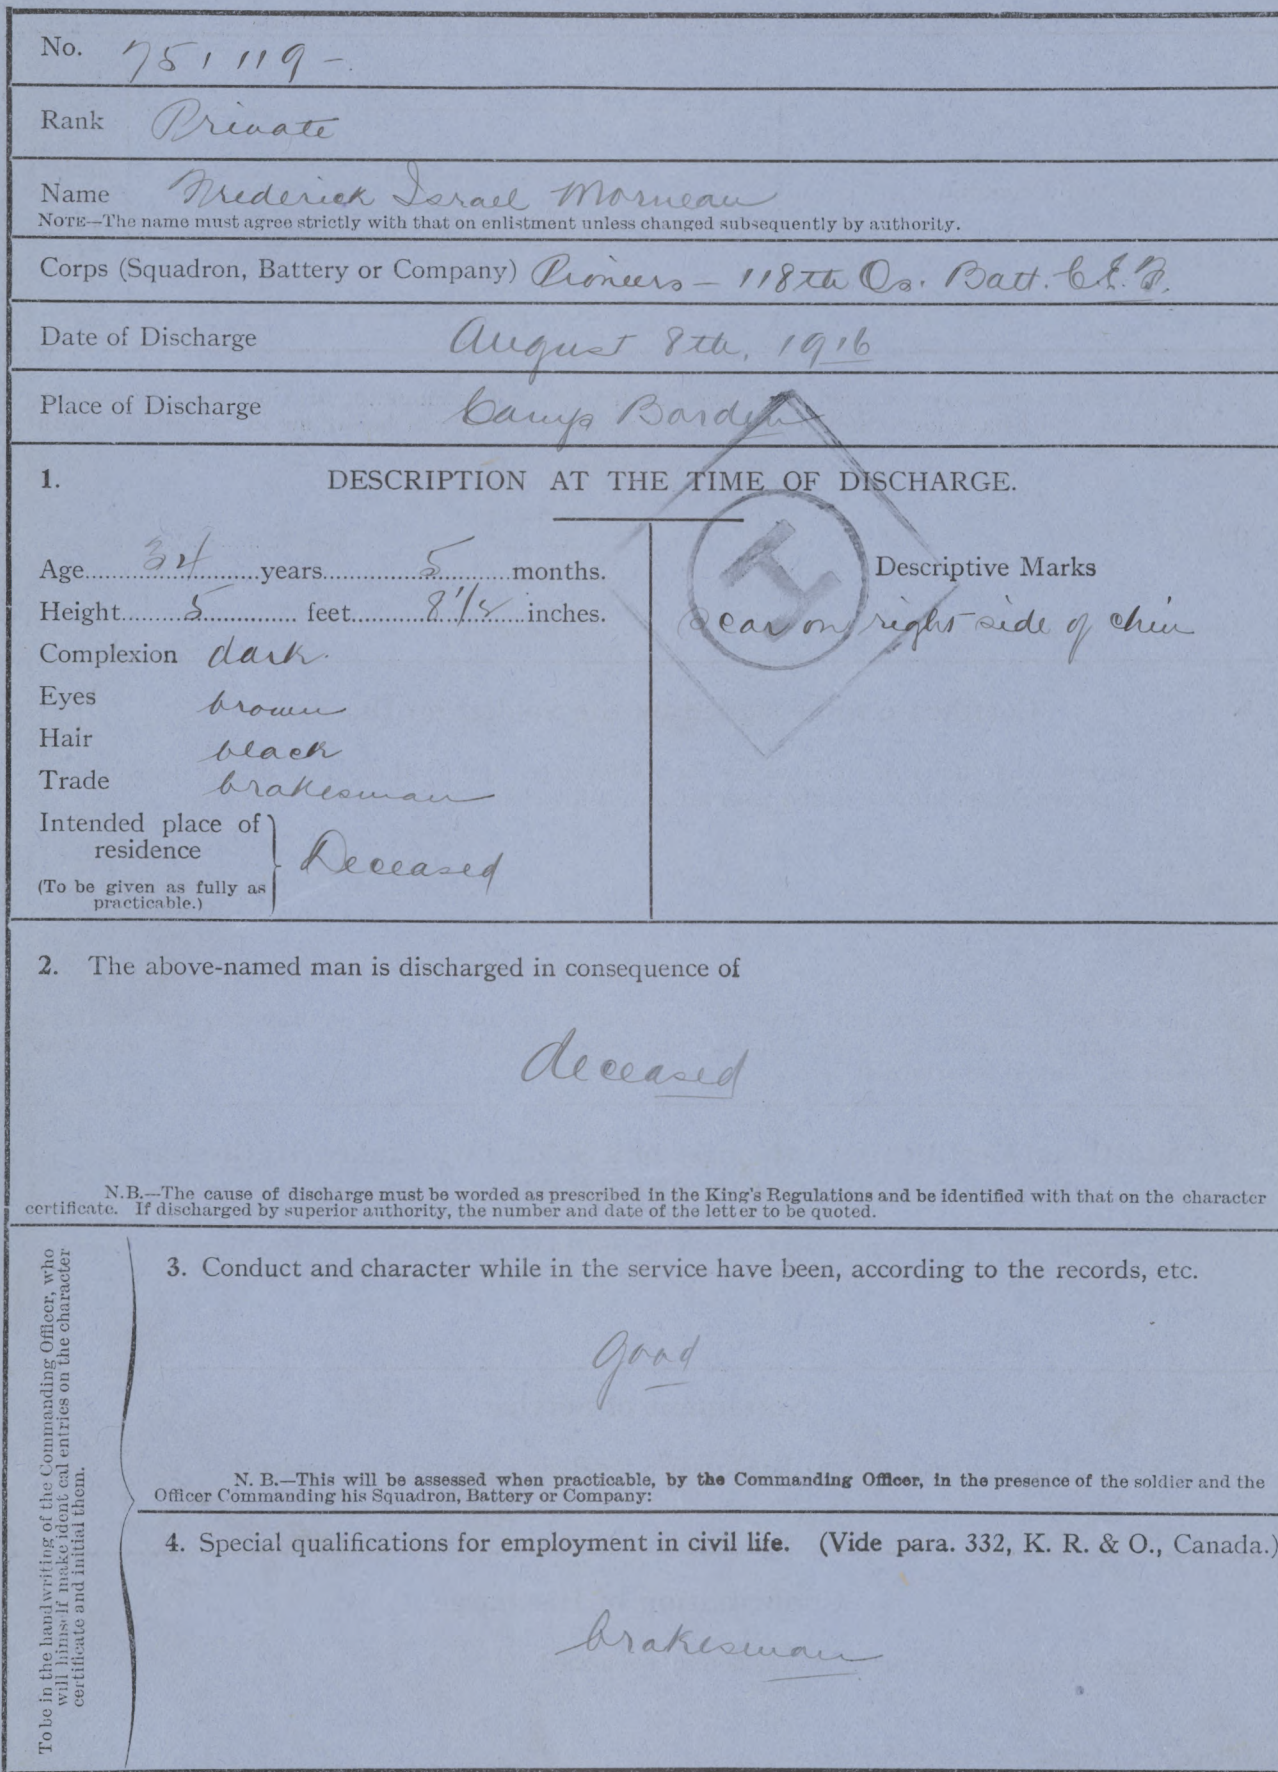 No. 751119-.
Rank Private
Name Frederick Israel Morneau
NOTE—The name must agree strictly with that on enlistment unless changed subsequently by authority.
Corps (Squadron, Battery or Company) Pioneers - 118th Os. Batt. C.E.F.
Date of Discharge August 8th, 1916
Place of Discharge Camp Borden
1. DESCRIPTION AT THE TIME OF DISCHARGE.
Age 34 years 5 months.
Height 5 feet 8 1/2 inches.
Complexion dark.
Eyes brown
Hair black
Trade brakesman
Intended place of residence Deceased
(To be given as fully as practicable.)
Descriptive Marks
Scar on right side of chin
H
2. The above-named man is discharged in consequence of
deceased
N.B.—The cause of discharge must be worded as prescribed in the King's Regulations and be identified with that on the character
certificate. If discharged by superior authority, the number and date of the letter to be quoted.
To be in the handwriting of the Commanding Officer, who
will himself make identical entries on the character
certificate and initial them.
3. Conduct and character while in the service have been, according to the records, etc.
good
N. B.—This will be assessed when practicable, by the Commanding Officer, in the presence of the soldier and the
Officer Commanding his Squadron, Battery or Company:
4. Special qualifications for employment in civil life. (Vide para. 332, K. R. & O., Canada.)
brakesman